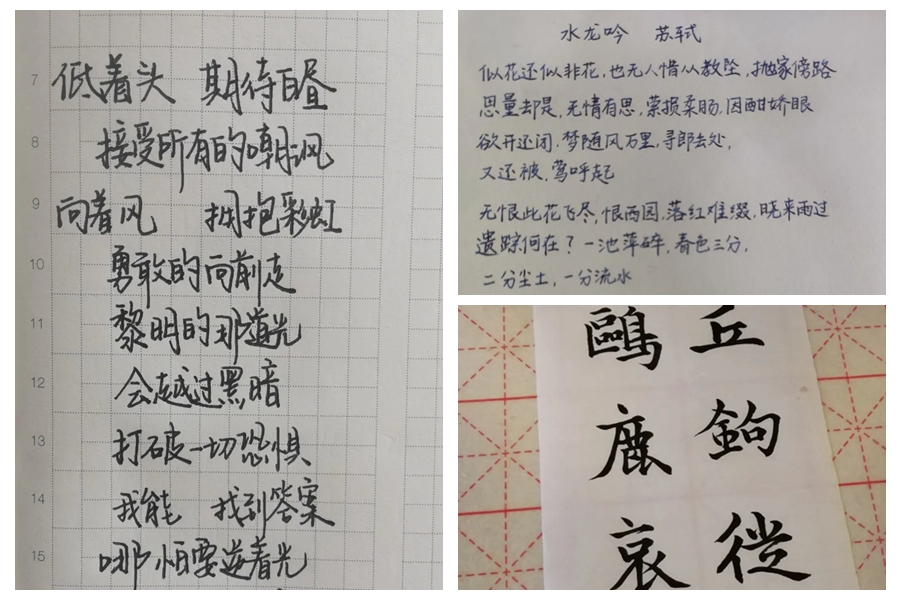 7 低着头 期待白昼
8 接受所有的嘲讽
9 向着风 拥抱彩虹
10 勇敢的向前走
11 黎明的那道光
12 会越过黑暗
13 打破一切恐惧
14 我能 找到答案
15 哪怕要逆着光
水龙吟 苏轼
似花还似非花,也无人惜从教坠,抛家傍路
思量却是,无情有思,萦损柔肠,因酣娇眼
欲开还闭,梦随风万里,寻郎去处,
又还被,莺呼起
无恨此花飞尽,恨西园,落红难缀,晓来雨过
遗踪何在?一池萍碎,春色三分,
二分尘土,一分流水
丘鉤
鷗鹿哀